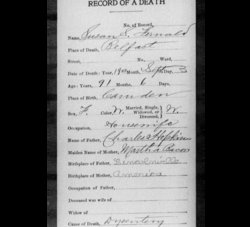 RECORD OF A DEATH
No. of Record,
Name, Susan S. Farnald
Place of Death, Belfast
Street, No. Ward,
Date of Death: Year, 19 Month, Sept Day, 3
Age: Years, 91 Months, 6 Days,
Place of Birth, Camden
Sex, F. Color, W. Married, Single, Widowed, or Divorced, W.
Occupation, Housewife
Name of Father, Charles Hopkins
Maiden Name of Mother, Martha
Birthplace of Father,
Birthplace of Mother, America
Occupation of Father,
Deceased was wife of
Widow of
Cause of Death, Dysentery